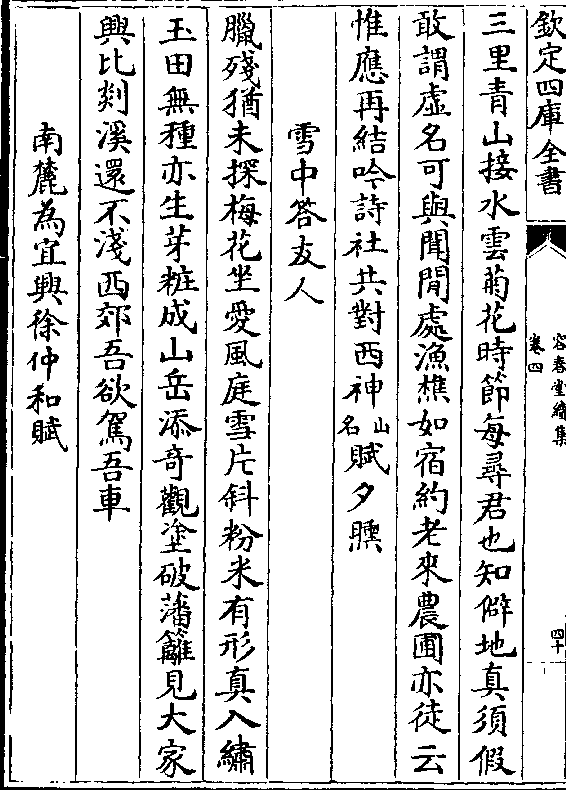 欽定四庫全書
容春堂續集
卷四
四十
三里青山接水雲菊花時節每尋君也知僻地真須假
敢謂虛名可與聞閒處漁樵如宿約老來農圃亦徒云
惟應再結吟詩社共對西神山名賦夕曛
雪中答友人
臘殘猶未探梅花坐愛風庭雪片斜粉米有形真入繡
玉田無種亦生芽粧成山岳添奇觀塗破藩籬見大家
興比剡溪還不淺西郊吾欲駕吾車
南麓為宜興徐仲和賦